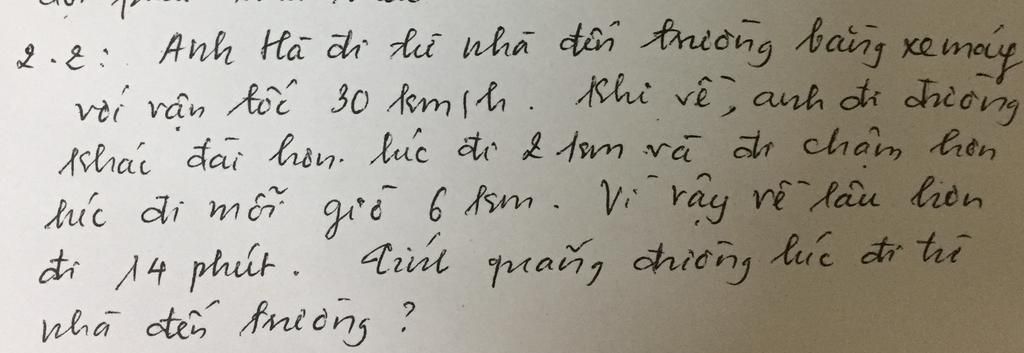 2.2: Anh Hà đi từ nhà đến trường bằng xe máy
với vận tốc 30 km/h. Khi về, anh đi đường
khác dài hơn lúc đi 2 km và đi chậm hơn
lúc đi mỗi giờ 6 km. Vì vậy về lâu hơn
đi 14 phút. Tính quãng đường lúc đi từ
nhà đến trường?